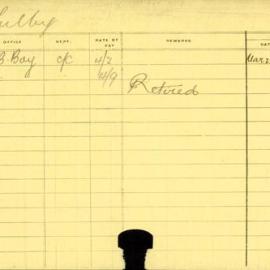 OFFICE DEPT. RATE OF PAY REMARKS DAT
B. Boy C/C 4/2 Mar 2
4/9 Retired